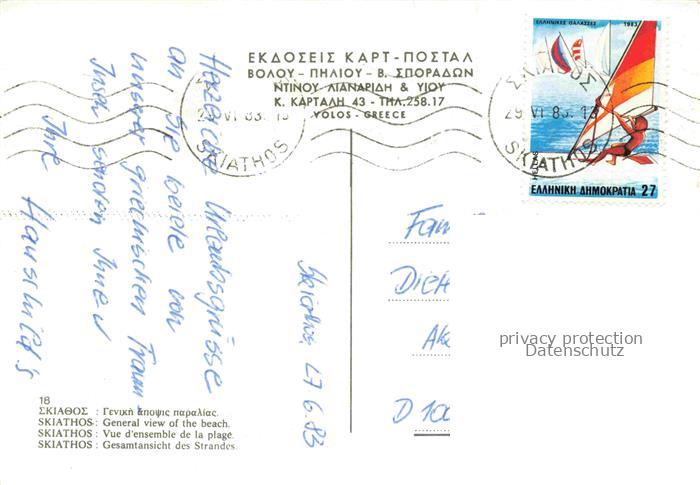 ΕΚΔΟΣΕΙΣ ΚΑΡΤ-ΠΟΣΤΑΛ
ΒΟΛΟΥ-ΠΗΛΙΟΥ-Β. ΣΠΟΡΑΔΩΝ
ΝΤΙΝΟΥ ΛΙΑΝΑΡΙΔΗ & ΥΙΟΥ
Κ. ΚΑΡΤΑΛΗ 43 - ΤΗΛ.258.17
VOLOS - GREECE
ΕΛΛΗΝΙΚΕΣ ΘΑΛΑΣΣΕΣ 1983
HELLAS
ΕΛΛΗΝΙΚΗ ΔΗΜΟΚΡΑΤΙΑ 27
ΣΚΙΑΘΟΣ
29 VI 83. 13
SKIATHOS
VI 83. 13
SKIATHOS
Herzliche Urlaubsgrüsse
an Sie beide von
unserer griechischen Traum-
Insel senden Ihnen
Ihre
Skiathos 27.6.83
Fam
Akó
D 100
privacy protection
Datenschutz
18
ΣΚΙΑΘΟΣ : Γενική άποψις παραλίας.
SKIATHOS : General view of the beach.
SKIATHOS : Vue d'ensemble de la plage.
SKIATHOS : Gesamtansicht des Strandes.